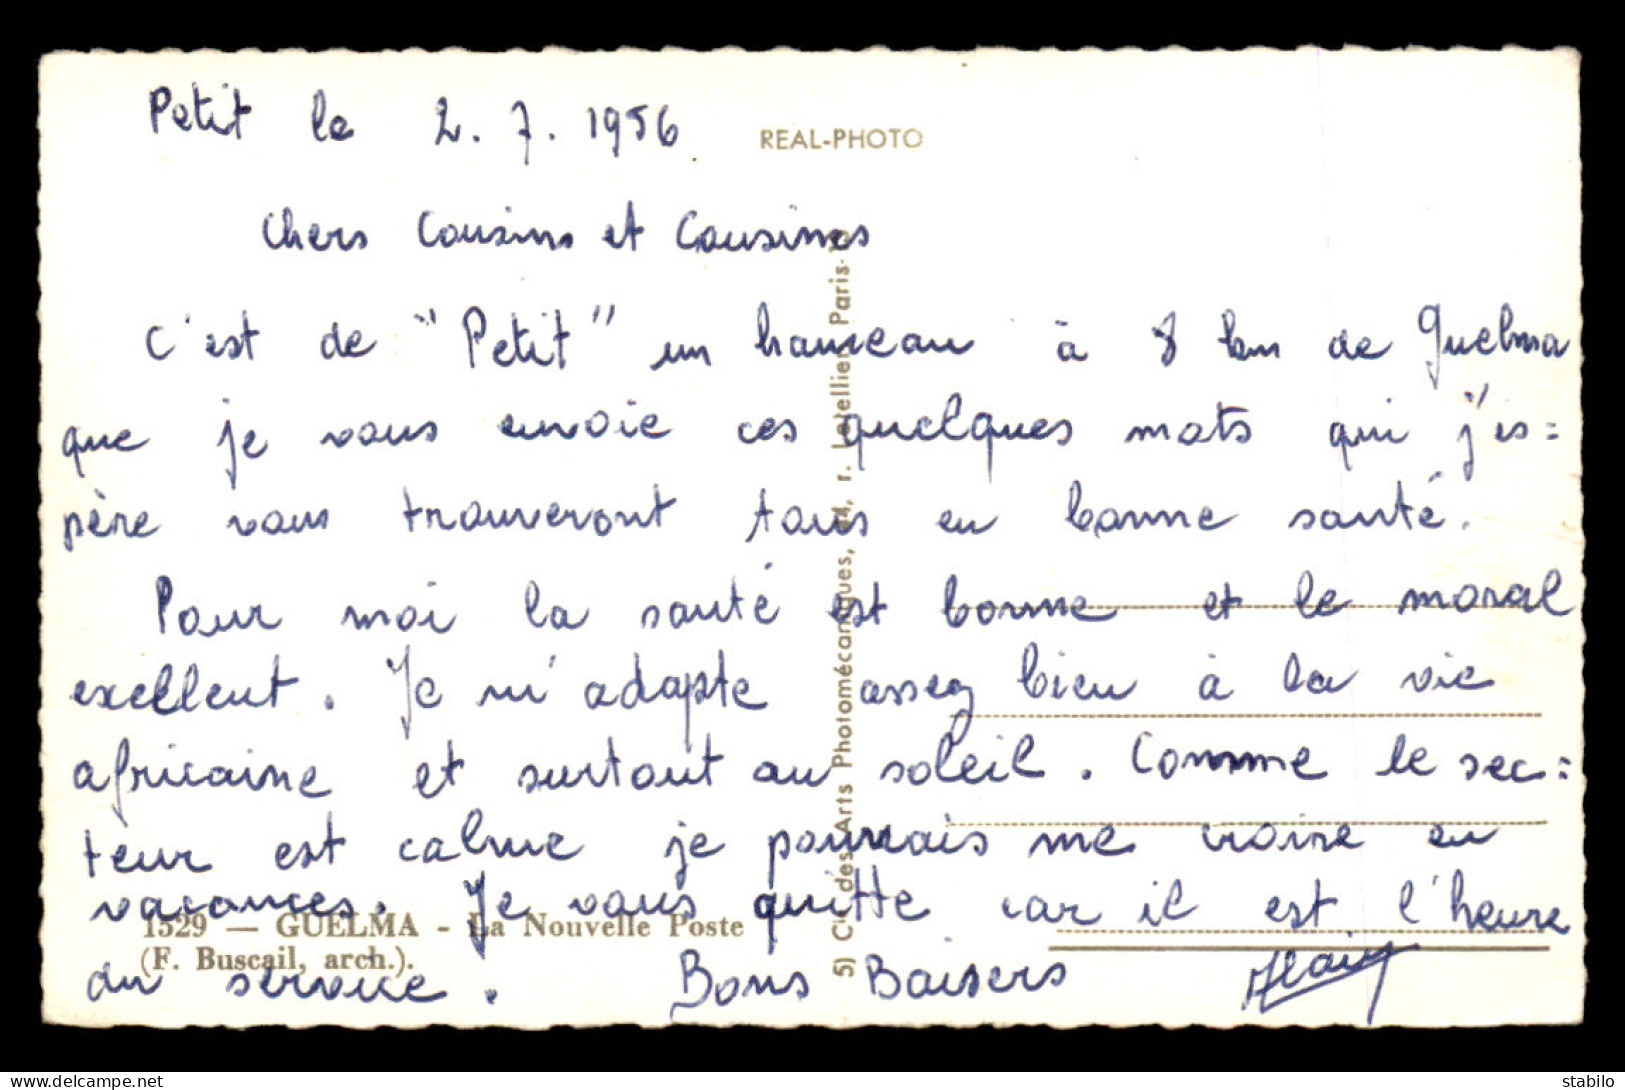 Petit le 2.7.1956
REAL-PHOTO
Chers Cousins et Cousines
C'est de "Petit" un hameau à 8 km de Guelma
que je vous envoie ces quelques mots qui j'es=
père vous trouveront tous en bonne santé.
Pour moi la santé est bonne et le moral
excellent. Je m'adapte assez bien à la vie
africaine et surtout au soleil. Comme le sec=
teur est calme je pourrais me croire en
vacances. Je vous quitte car il est l'heure
du service. Bons Baisers Alain
1529 — GUELMA - La Nouvelle Poste
(F. Buscail, arch.).
5) Cie des Arts Photomécaniques, 44, r. Letellier Paris-15
stabilo